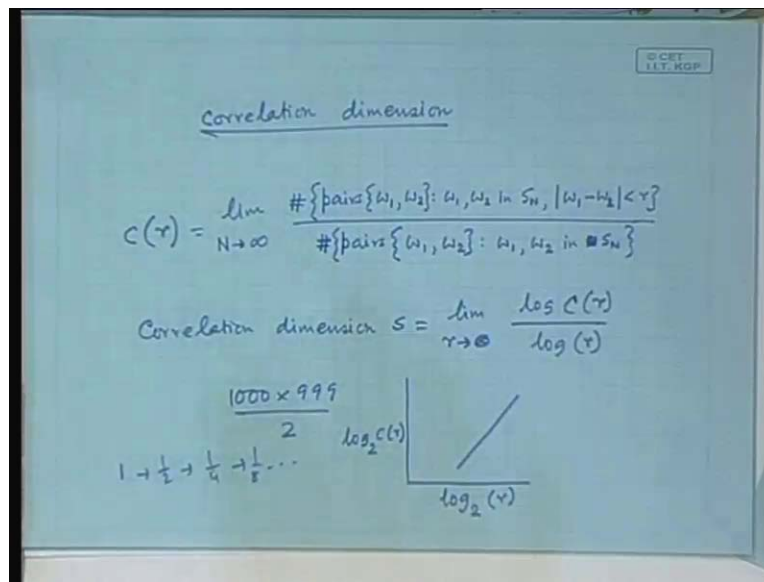 © CET
I.I.T. KGP
Correlation dimension
C(r) = lim N→∞ #{pairs{ω₁, ω₂}: ω₁, ω₂ in S_N, |ω₁-ω₂| < r} / #{pairs{ω₁, ω₂}: ω₁, ω₂ in S_N}
Correlation dimension S = lim r→0 log C(r) / log (r)
1000 × 999 / 2
1 → 1/2 → 1/4 → 1/8 ...
log₂ C(r)
log₂ (r)